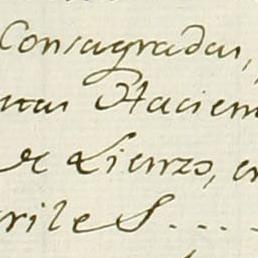 Consagradas,
ntas Haciem
de Lienzo, en
rril e S....